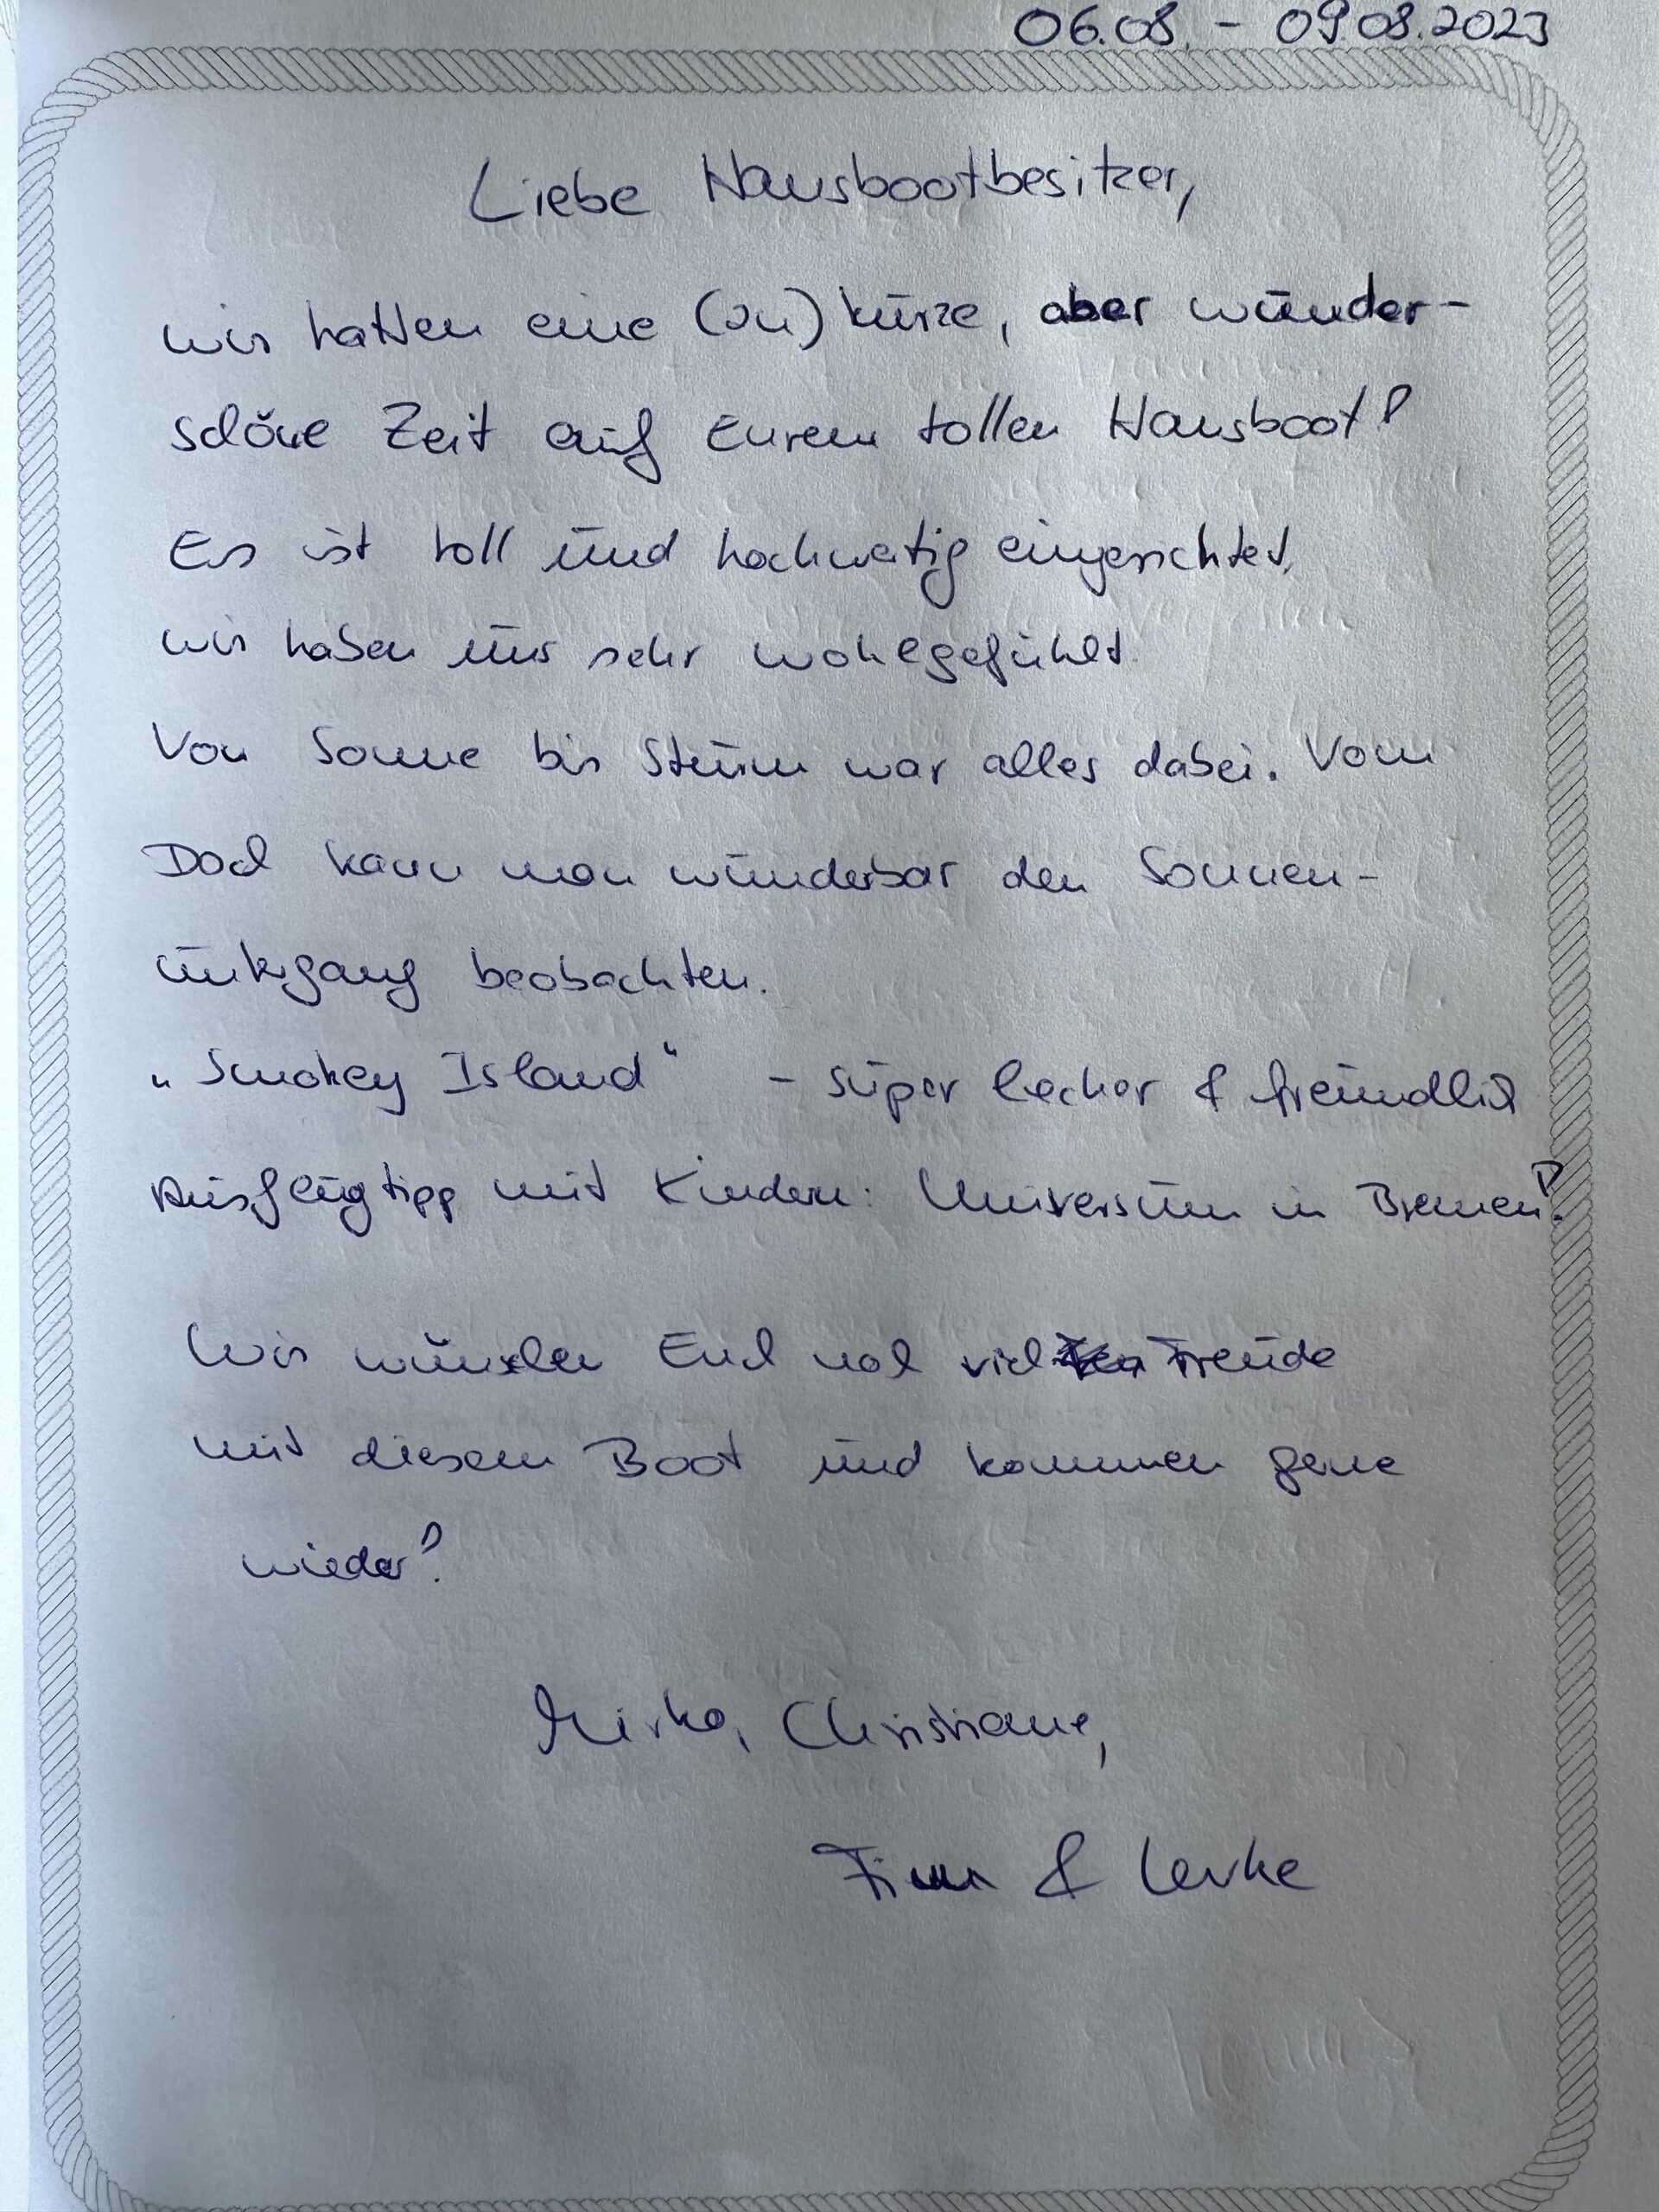 06.08. - 09.08.2023
Liebe Hausbootbesitzer,
wir hatten eine (zu) kurze, aber wunder-
schöne Zeit auf Eurem tollen Hausboot!
Es ist toll und hochwertig eingerichtet,
wir haben uns sehr wohlgefühlt.
Von Sonne bis Sturm war alles dabei. Vom
Dach kann man wunderbar den Sonnen-
untergang beobachten.
„Smokey Island“ - super lecker & freundlich
Ausflugtipp mit Kindern: Universum in Bremen!
Wir wünschen Euch noch viel Freude
mit diesem Boot und kommen gerne
wieder!
Mirko, Christiane,
Finn & Levke